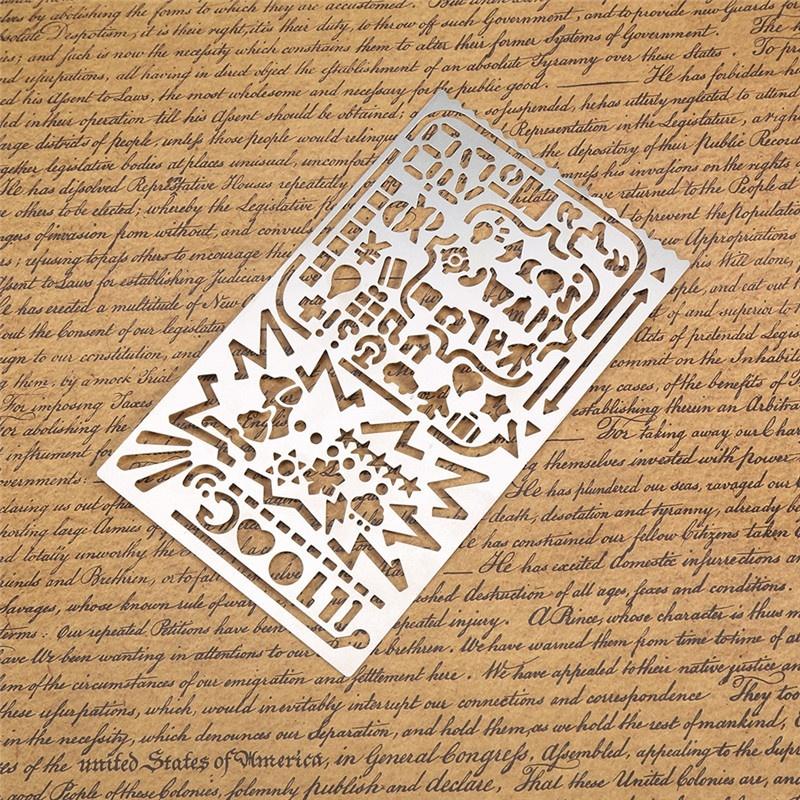 for abolishing the forms to which they are accustomed. But when
absolute Despotism, it is their right, it is their duty, to throw off such Government, and to provide new Guards for
and such is now the necessity which constrains them to alter their former Systems of Government. The
and usurpations, all having in direct object the establishment of an absolute Tyranny over these States. To
his Assent to Laws, the most wholesome and necessary for the public good. He has forbidden
in their operation till his Assent should be obtained; suspended, he has utterly neglected to attend
large districts of people, unless those people would relinquish Representation in the Legislature, a right
together legislative bodies at places unusual, uncomfortable the depository of their Public Records
He has dissolved Representative Houses repeatedly his invasions on the rights
others to be elected; whereby the Legislative have returned to the People at
dangers of invasion from without, and convulsions to prevent the Population
refusing to pass others to encourage new Appropriations
Assent to Laws for establishing Judiciary his Will alone,
He has erected a multitude of New people, and eat out
without the Consent of our legislatures of and superior to
to our constitution, and Acts of pretended Legislation
them, by a mock Trial commit on the Inhabitants
For imposing Taxes many cases, of the benefits of
For abolishing the establishing therein an Arbitrary
instrument for For taking away our
Governments: themselves invested with power
declaring us out of He has plundered our seas, ravaged our
large Armies of death, desolation and tyranny, already
totally unworthy the He has constrained our fellow Citizens taken
friends and Brethren, or to He has excited domestic insurrections
Savages, whose known rule of undistinguished destruction of all ages, sexes and conditions.
terms: Our repeated Petitions have been repeated injury. A Prince, whose character is thus
have We been wanting in attentions to brethren. We have warned them from time to time of
them of the circumstances of our emigration and settlement here. We have appealed to their native justice
these usurpations, which would inevitably interrupt our connections and correspondence They too
in the necessity, which denounces our Separation, and hold them, as we hold the rest of mankind,
of the united States of America, in General Congress, Assembled, appealing to the
good People of these Colonies, solemnly publish and declare, That these United Colonies are, and